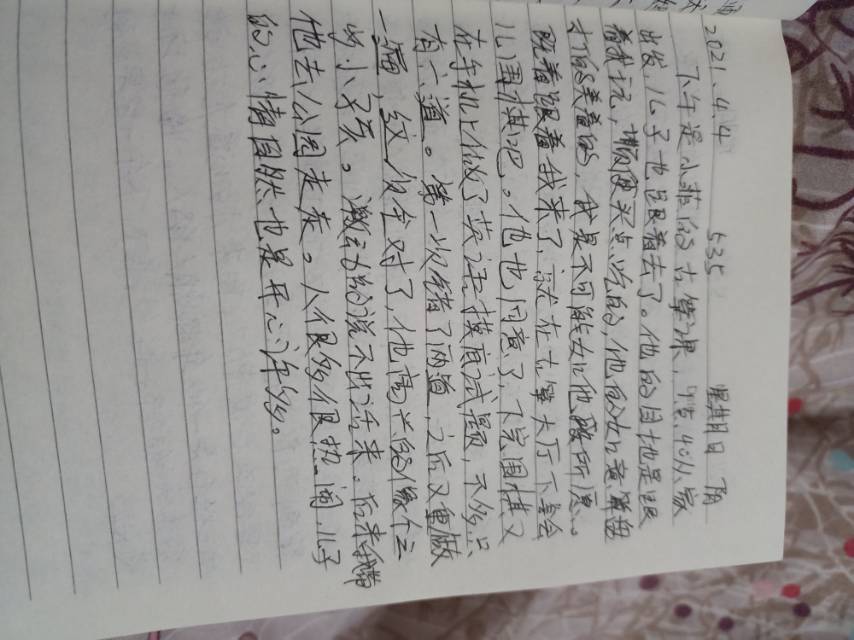 2021.4.4 535 星期日 阴
下午是小菲的古筝课，1点40从家
出发，儿子也跟着去了。他的目地是跟
着我玩，顺便买点吃的，他的如意算盘
打的美着的，我是不可能如他所愿。
既着跟着我来了，就在古筝大厅下会
儿围棋吧。他也同意了，下完围棋又
在手机上做了英语摸底试题，不多只
有六道。第一次错了两道，之后又重做
一遍 终全对了，他高兴的像个三
岁小孩。激动的说不出话来。后来我带
他去公园走走。人很多很热闹，儿子
的心情自然也是开心许多。